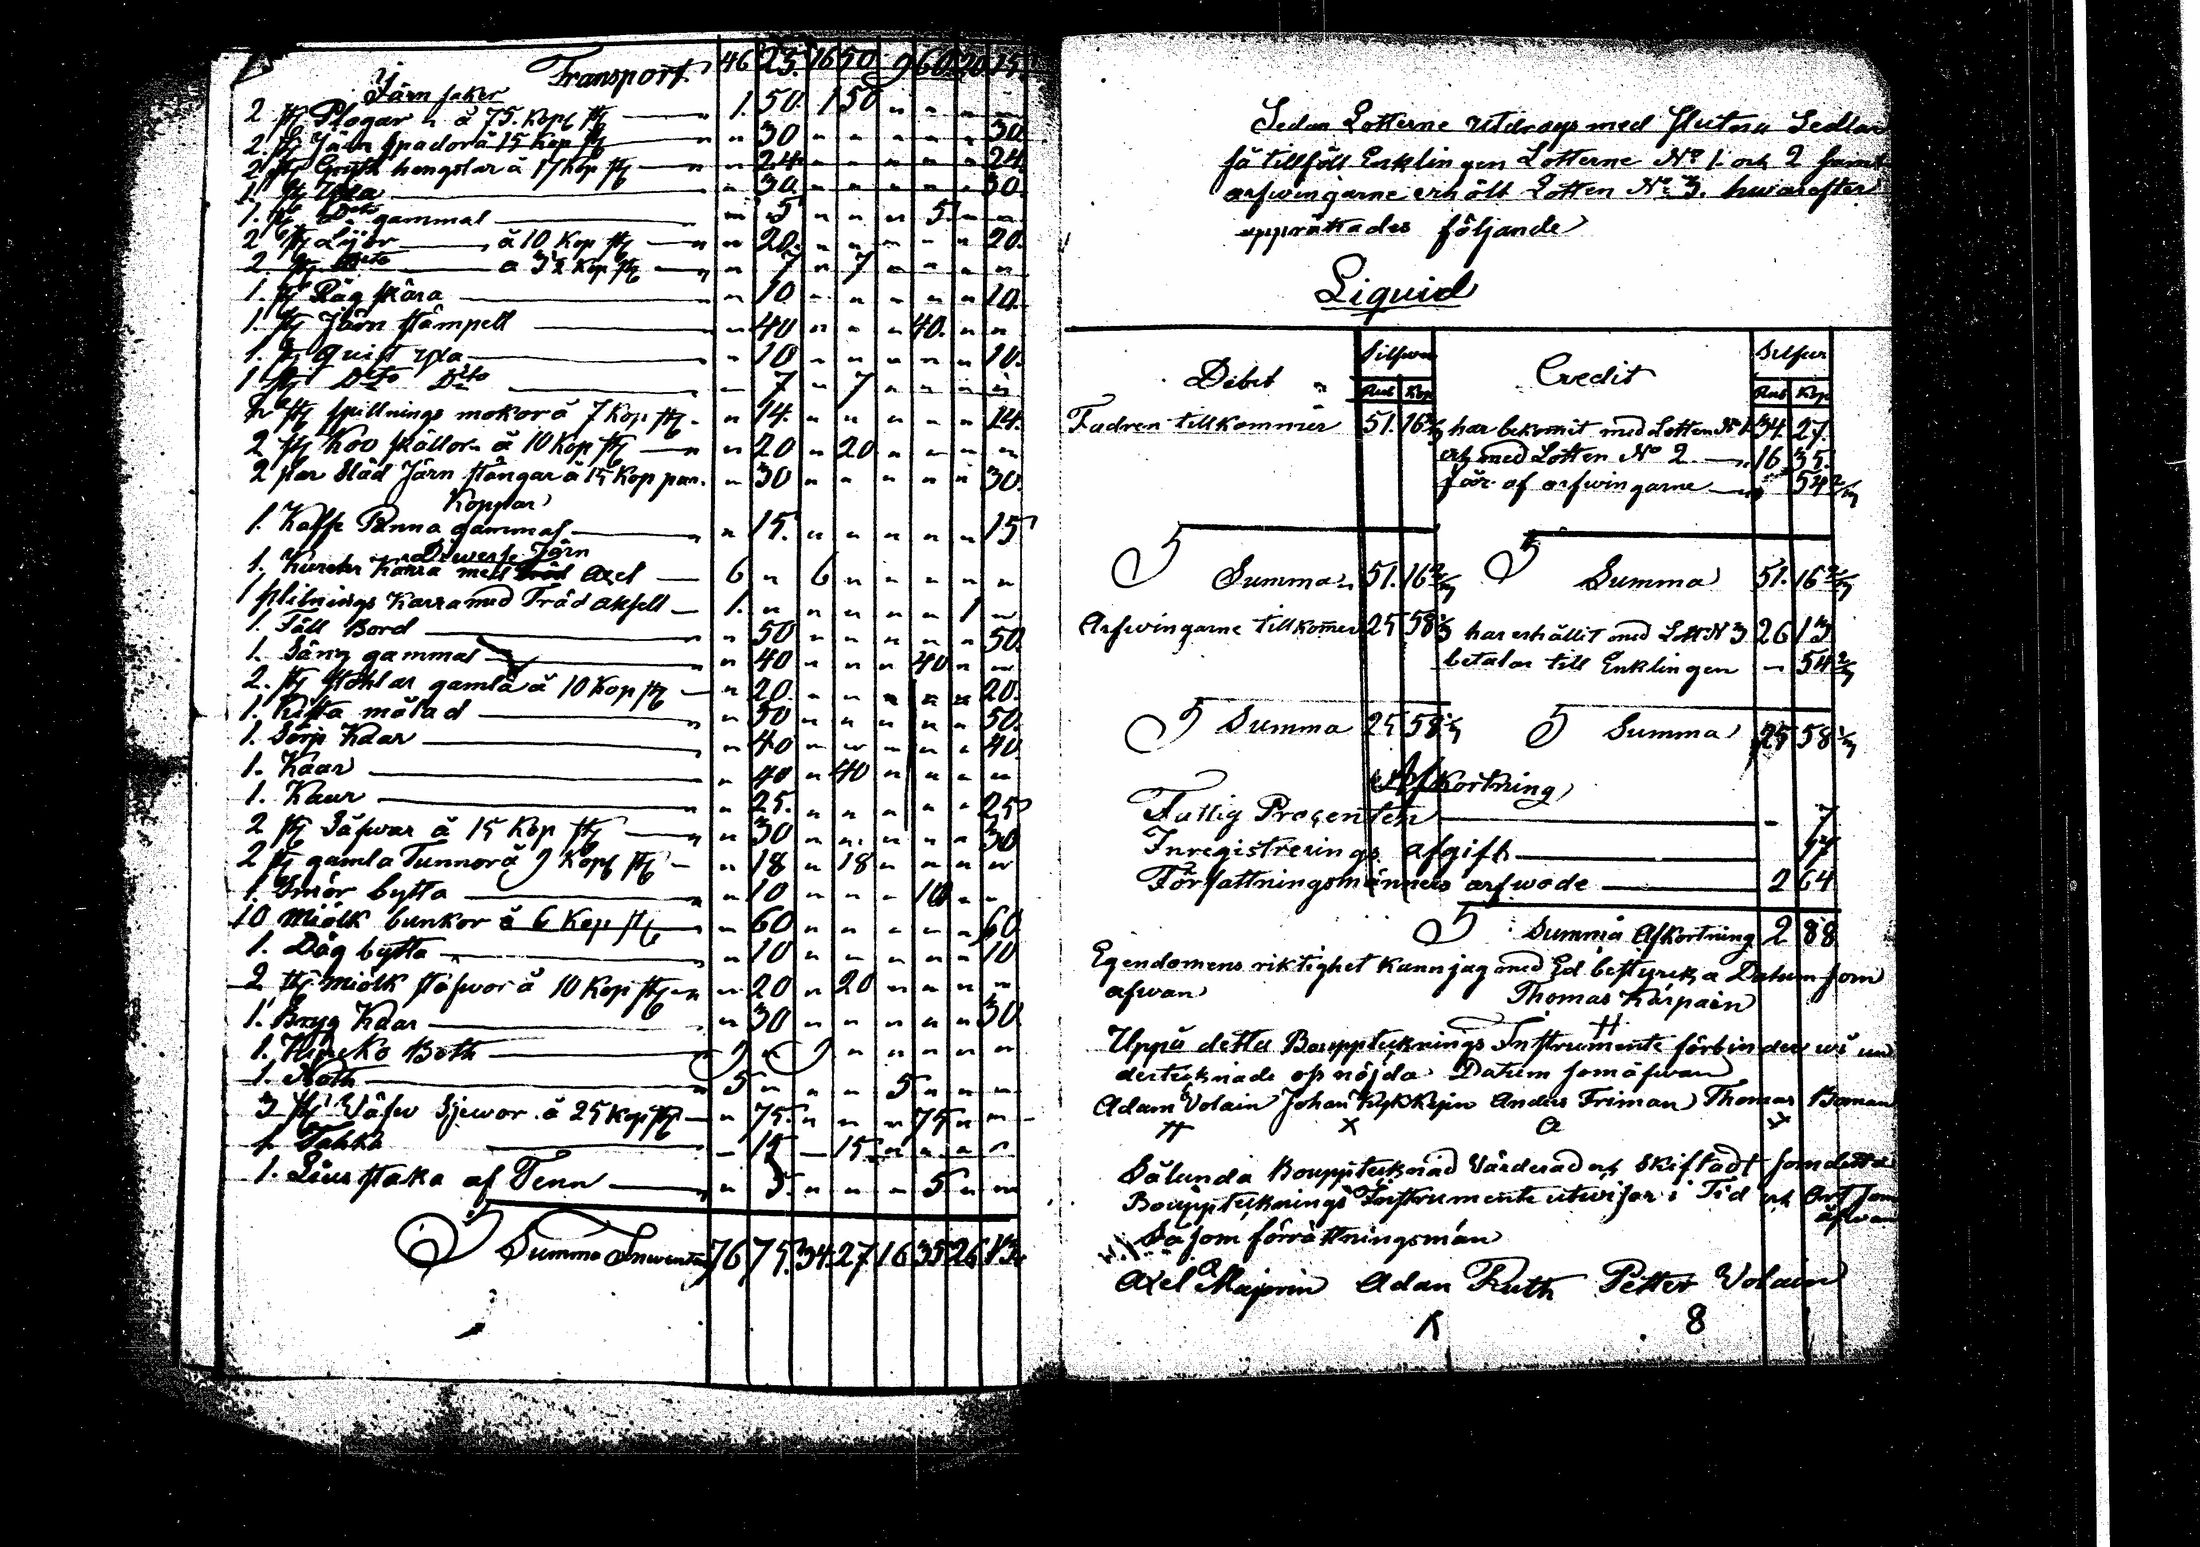 Transport 46 23. 16 50 9 60. 20 15.
Järn saker
2 st Plogar " à 75. Kop st — 1. 50. 1 50 " " " "
2. st Järn spador à 15 Kop st — " 30 " " " " " 30
2 st hengslar à 1 Kop st — " 24. " " " " " 24
1. st Yxa — " 30 " " " " " 30.
1. st Dito gammal — " 5 " " " 5. " "
2 st Lijor — à 10 Kop st — " 20. " " " " " 20.
2. st Dito — à 3½ Kop st — " 7 " 7 " " " "
1. st Råg skära — " 10 " " " " " 10.
1. st Järn stämpell — " 40 " " " 40. " "
1. st quist yxa — " 10 " " " " " 10.
1 st Dto Dto — " 7 " 7 " " " "
st spillnings mokor à 7 Kop st. " 14. " " " " " 14.
2 st Koo skällor à 10 Kop st — " 20 " 20 " " " "
2 par Släd Järn stångar à 15 Kop par. " 30 " " " " " 30.
Koppar
1. Kaffe Panna gammal — " 15. " " " " " 15
Diwerse Järn
1. Kärra med Axel — 6 " 6 " " " " "
1 spillnings Karra med Träd aksell — 1. " " " " " 1 "
1. Säll Bord — " 50 " " " " " 50.
1. Säng gammal — " 40 " " " 40 " "
2. st Stohlar gamla à 10 Kop st — " 20. " " " " " 20.
1. Kista målad — " 50 " " " " " 50.
1. Sörp Kaar — " 40 " " " " " 40.
1. Kaar — " 40 " 40 " " " "
1. Kaar — " 25. " " " " " 25
2 st Säfwar à 15 Kop st — " 30 " " " " " 30
2 st gamla Tunnor à 9 Kop st — " 18 " 18 " " " "
1. Smör bytta — " 10 " " " 10 " "
10 Miölk bunkor à 6 Kop st " 60 " " " " " 60
1. Däg bytta — " 10 " " " " " 10
2 st Miölk stäfwor à 10 Kop st — " 20 " 20 " " " "
1. Bryg Kaar — " 30 " " " " " 30
1. Both — 9 " 9 " " " " "
1. Noth — 5 " " " 5 " " "
3 st Säfw Sjewor à 25 Kop st — " 75. " " " 75 " "
1. Tahka — " 15 " 15 " " " "
1. Lius staka af Tenn — " 5. " " " 5 " "
Summa Inwentar 76 75. 34. 27 16 35 26 13.
Sedan Lotterne utdrogs med slutna Sedlar
så tillföll Enklingen Lotterne No 1 och 2 samt
arfwingarne erhölt Lotten No 3. hwarefter
upprättades följande
Liquid
Debet " Silfwer Credit Silfwer
Rub Kop Rub Kop
Fadren tillkommer 51. 16 2/3 har bekomit med Lotten N 1 34. 27.
och med Lotten No 2. — 16 35.
får af arfwingarne — " 54 2/3
Summa 51. 16 2/3 Summa 51. 16 2/3
Arfwingarne tillkomer 25 58 1/3 har erhållit med Lott N 3 26 13
betalar till Enklingen — 54 2/3
Summa 25 58 1/3 Summa 25 58 1/3
Afkortning
Fattig Procenten — 7
Inregistrerings afgift — 17
Författningsmänners arfwode — 2 64
Summa Afkortning 2 88
Egendomens riktighet kann jag med Ed bestyrcka Datum som
afwan Thomas Kärpäin
Uppå detta Bouppteknings Instrumente förbinder wi un
dertecknade os nöjda Datum som afwan
Adam Wolain Johan Kykkyin Anders Friman Thomas Boman
Sålunda Bouppteknad Wärderad och Skiftadt som detta
Bouppteknings Instrumente utwisar i Tid och Art som
äfwan
Såsom förrättningsmän
Axel Majorin Adan Ruth Petter Wolain
8